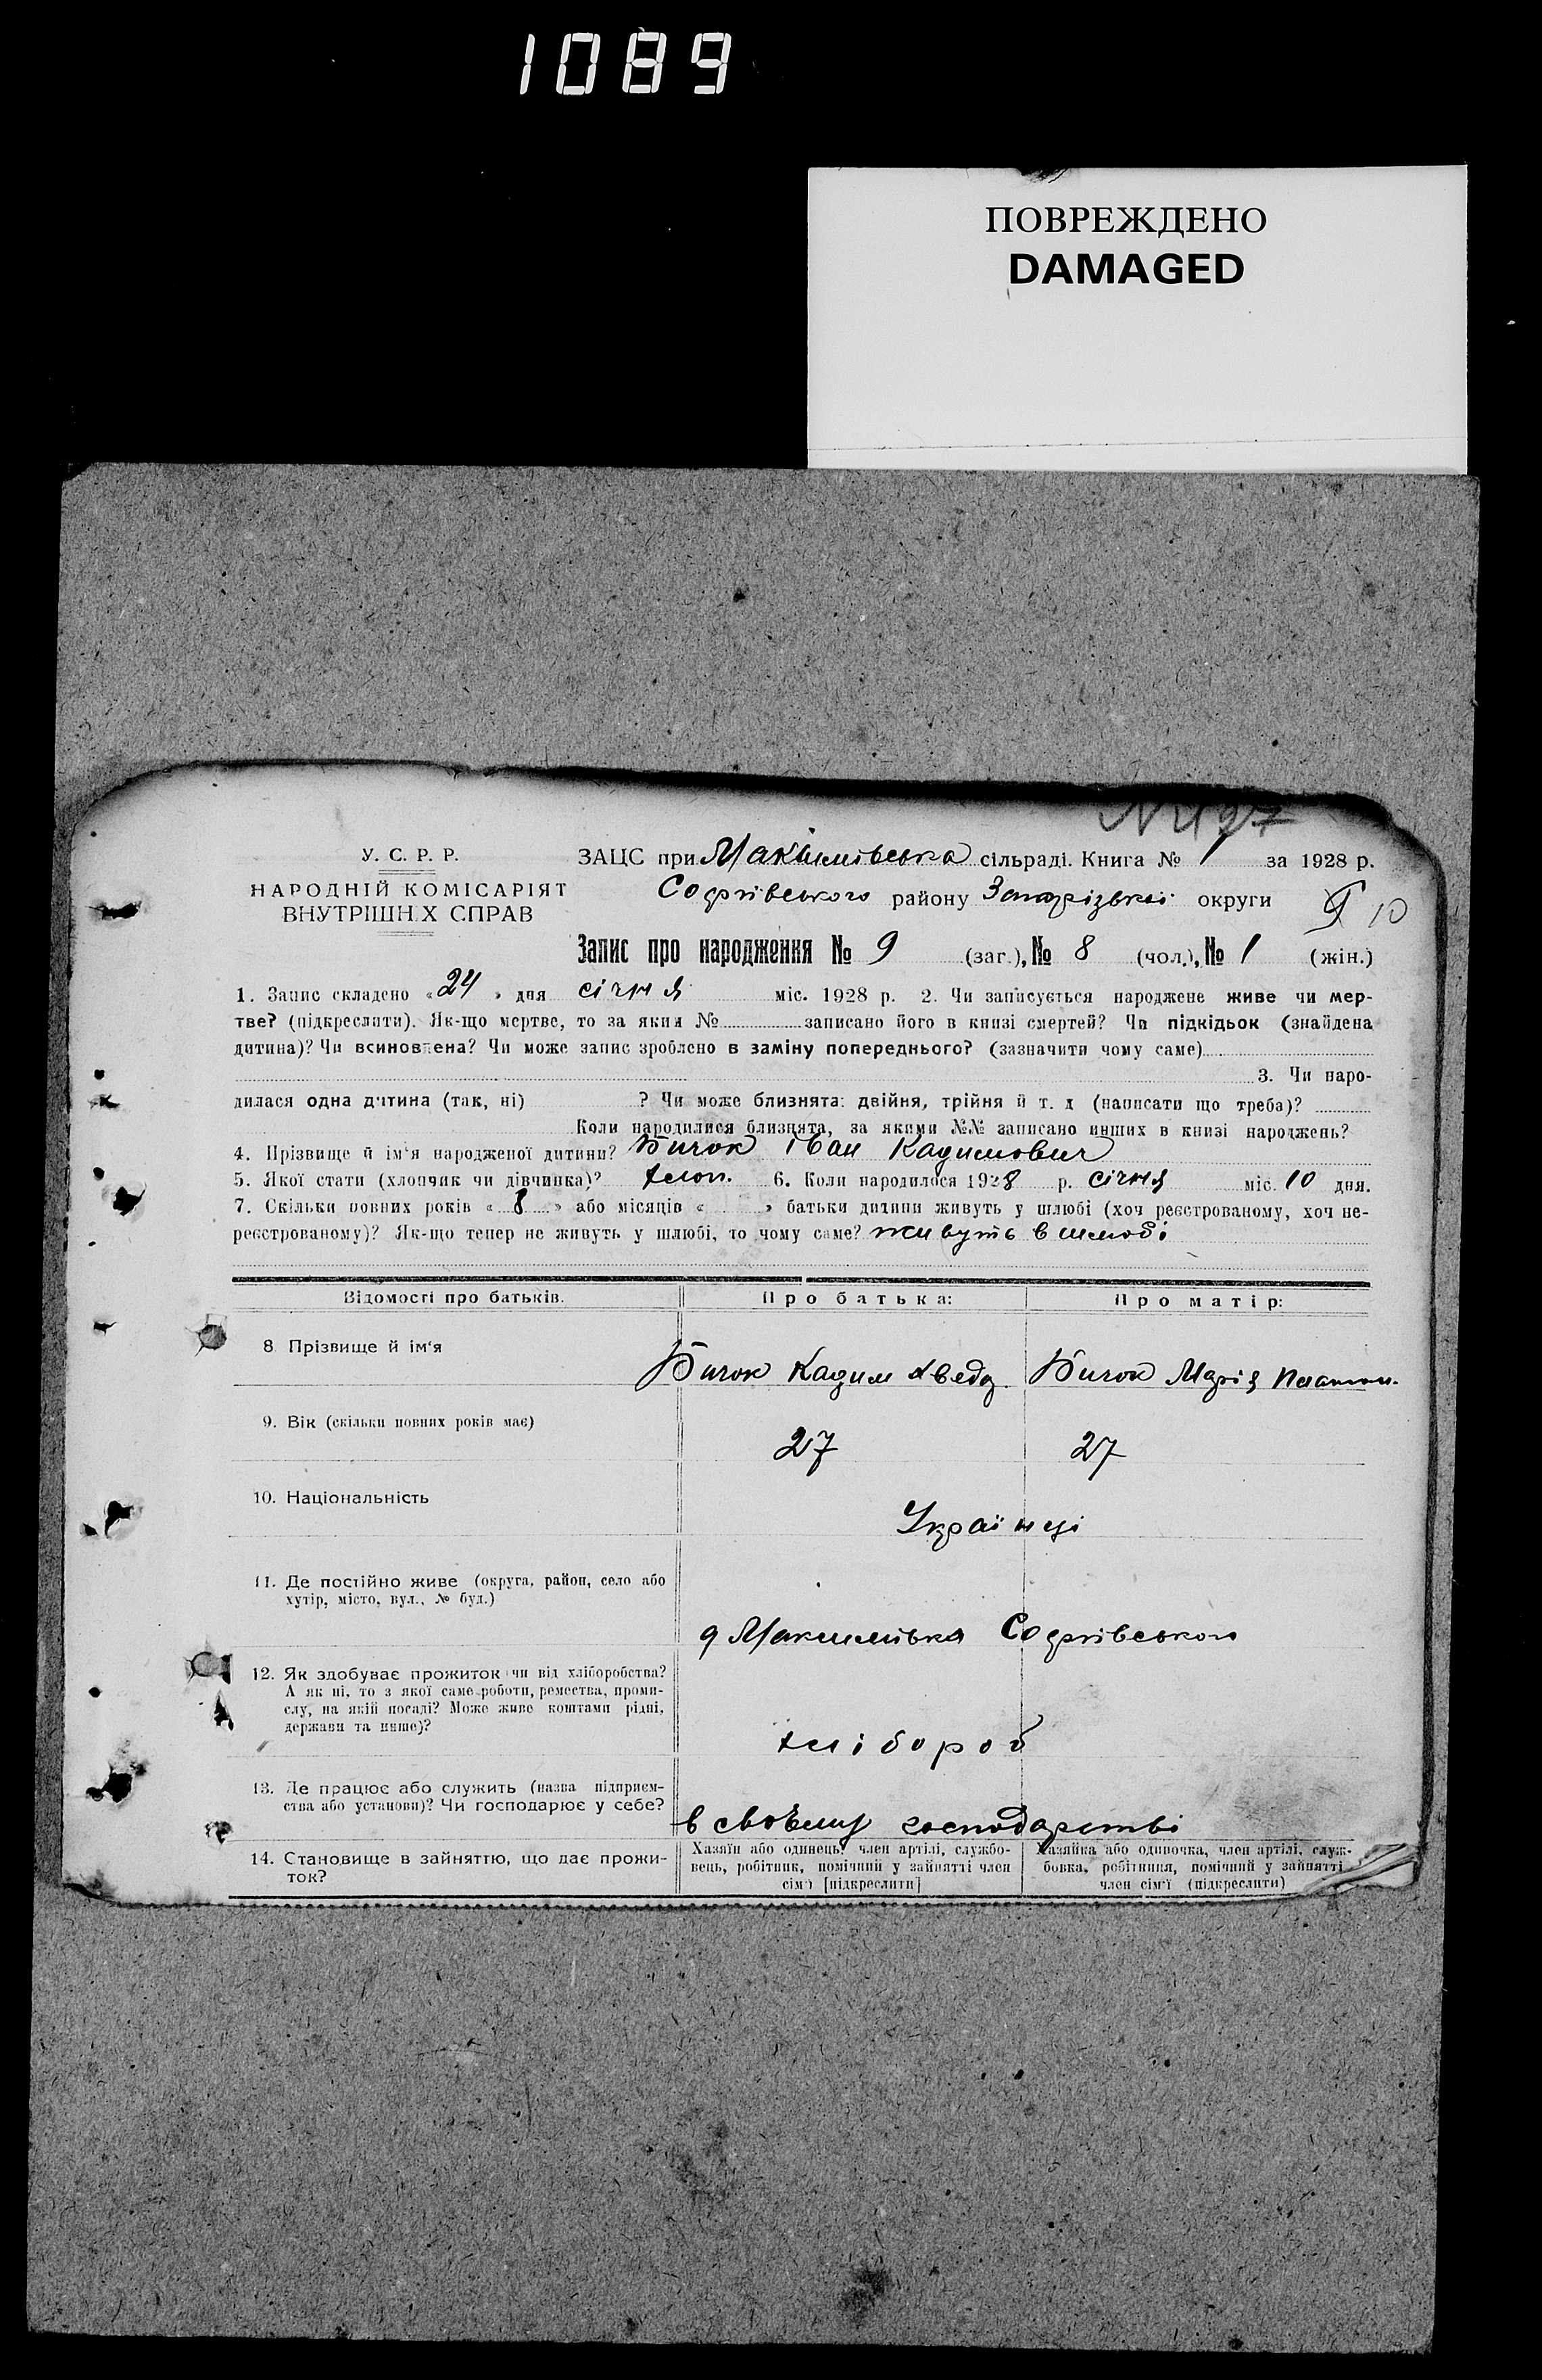 1089
ПОВРЕЖДЕНО
DAMAGED
У. С. Р. Р.
НАРОДНІЙ КОМІСАРІЯТ
ВНУТРІШНІХ СПРАВ
ЗАЦС при Максимівська сільраді. Книга № 1 за 1928 р.
Софіївського району Запорізької округи
10
Запис про народження № 9 (заг.), № 8 (чол.), № 1 (жін.)
1. Запис складено « 24 » дня січня міс. 1928 р. 2. Чи записується народжене живе чи мер-
тве? (підкреслити). Як-що мертве, то за яким № записано його в книзі смертей? Чи підкідьок (знайдена
дитина)? Чи всиновлена? Чи може запис зроблено в заміну попереднього? (зазначити чому саме)
3. Чи наро-
дилася одна дитина (так, ні) ? Чи може близнята: двійня, трійня й т. д (написати що треба)?
Коли народилися близнята, за якими №№ записано инших в книзі народжень?
4. Прізвище й ім'я народженої дитини? Бичок Іван Кадимович
5. Якої стати (хлопчик чи дівчинка)? хлоп. 6. Коли народилося 1928 р. січня міс. 10 дня.
7. Скільки повних років « 8 » або місяців « » батьки дитини живуть у шлюбі (хоч реєстрованому, хоч не-
реєстрованому)? Як-що тепер не живуть у шлюбі, то чому саме? живуть в шлюбі
Відомості про батьків. Про батька: Про матір:
8 Прізвище й ім'я Бичок Кадим Бичок Марія Платон.
9. Вік (скільки повних років має) 27 27
10. Національність Українці
11. Де постійно живе (округа, район, село або
хутір, місто, вул., № буд.)
Максимівка Софіївського
12. Як здобуває прожиток чи від хліборобства?
А як ні, то з якої саме роботи, ремества, проми-
слу, на якій посаді? Може живе коштами рідні,
держави та инше)?
хлібороб
13. Де працює або служить (назва підприєм-
ства або установи)? Чи господарює у себе?
в своєму господарстві
14. Становище в зайняттю, що дає прожи-
ток?
Хазяїн або одинець, член артілі, службо-
вець, робітник, помічний у зайнятті член
сім'ї [підкреслити]
Хазяйка або одиночка, член артілі, служ-
бовка, робітниця, помічний у зайнятті
член сім'ї (підкреслити)